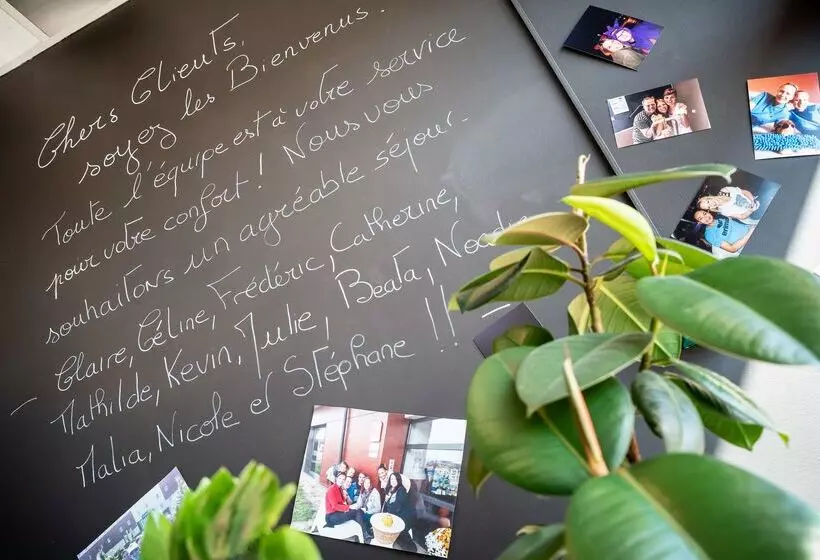 Chers Clients,
soyez les Bienvenus.
Toute l'équipe est à votre service
pour votre confort ! Nous vous
souhaitons un agréable séjour.
Claire, Céline, Frédéric, Catherine,
Mathilde, Kevin, Julie, Beata,
Malia, Nicole et Stéphane !!